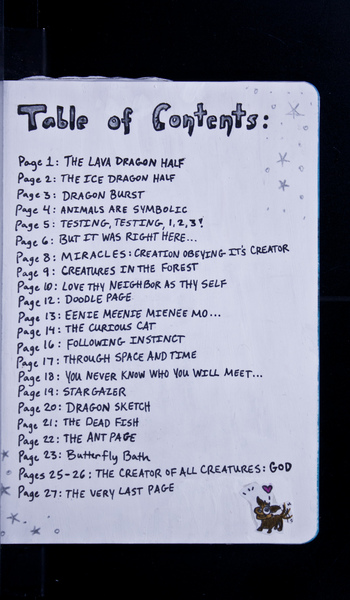 Table of Contents:
Page 1: THE LAVA DRAGON HALF
Page 2: THE ICE DRAGON HALF
Page 3: DRAGON BURST
Page 4: ANIMALS ARE SYMBOLIC
Page 5: TESTING, TESTING, 1,2,3!
Page 6: BUT IT WAS RIGHT HERE...
Page 8: MIRACLES: CREATION OBEYING IT'S CREATOR
Page 9: CREATURES IN THE FOREST
Page 10: LOVE THY NEIGHBOR AS THY SELF
Page 12: DOODLE PAGE
Page 13: EENIE MEENIE MIENEE MO...
Page 14: THE CURIOUS CAT
Page 16: FOLLOWING INSTINCT
Page 17: THROUGH SPACE AND TIME
Page 18: YOU NEVER KNOW WHO YOU WILL MEET...
Page 19: STARGAZER
Page 20: DRAGON SKETCH
Page 21: THE DEAD FISH
Page 22: THE ANT PAGE
Page 23: Butterfly Bath
Pages 25-26: THE CREATOR OF ALL CREATURES: GOD
Page 27: THE VERY LAST PAGE